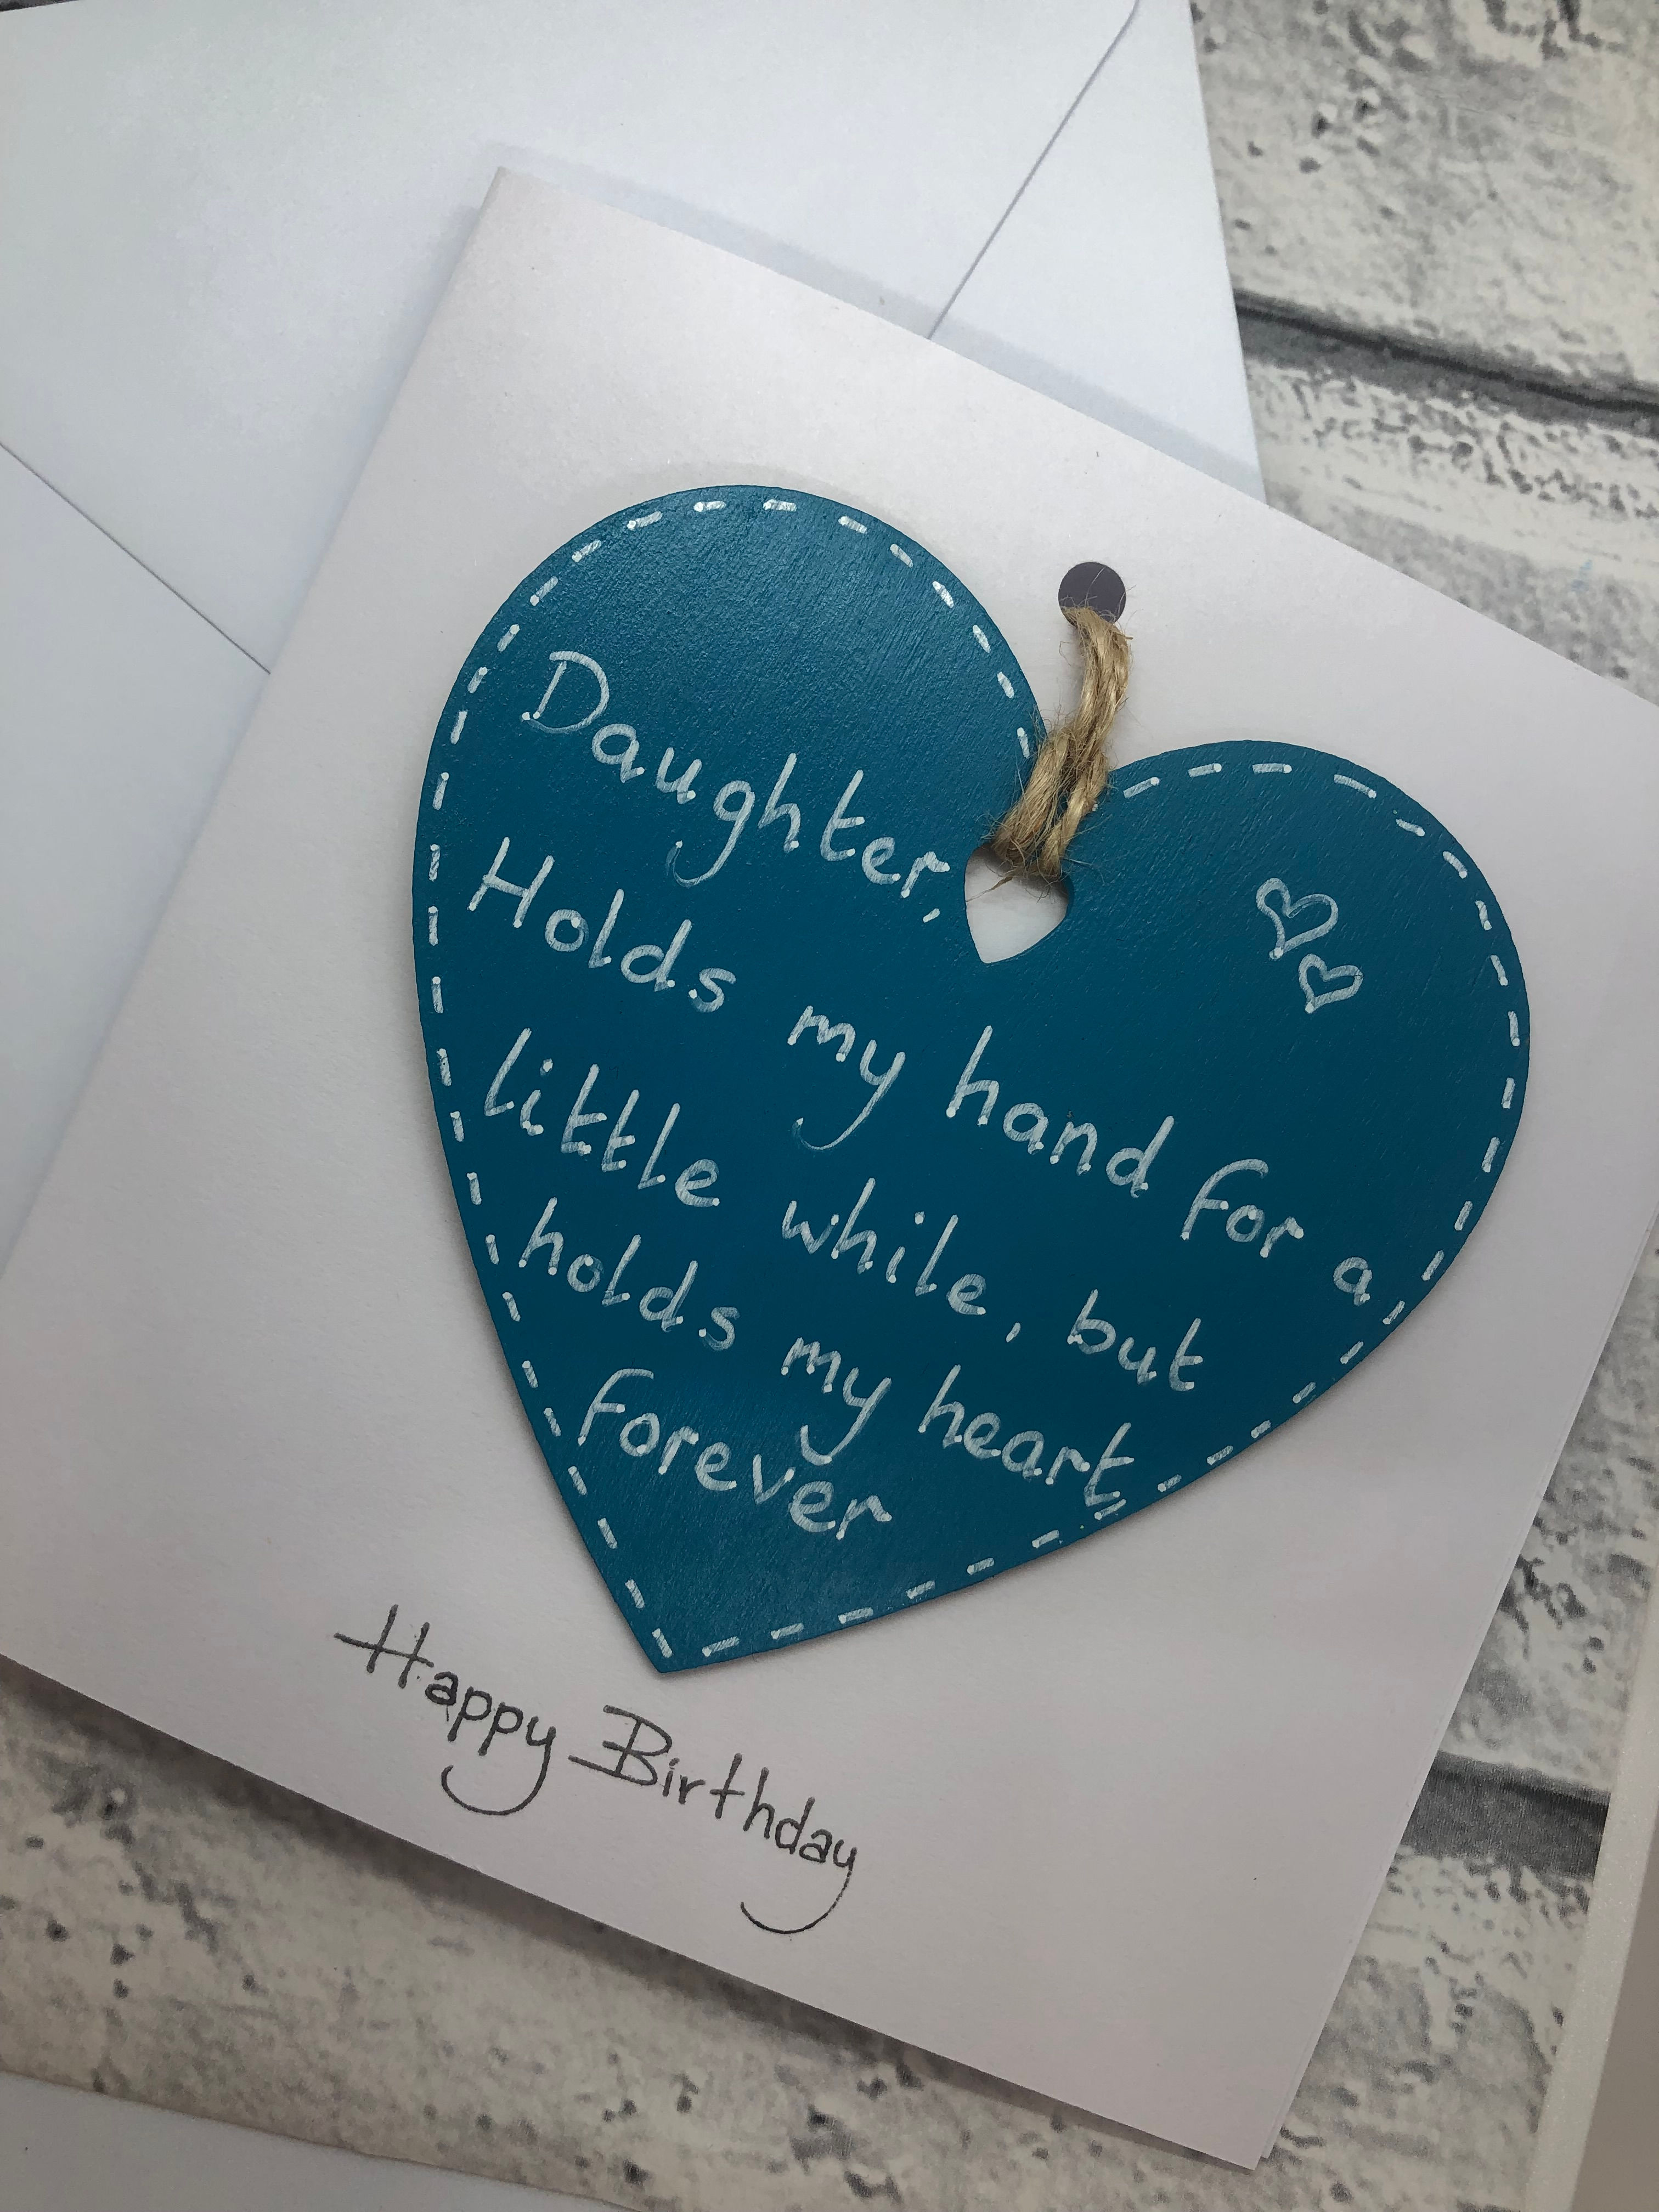 Daughter,
Holds my hand for a
little while, but
holds my heart
forever
Happy Birthday